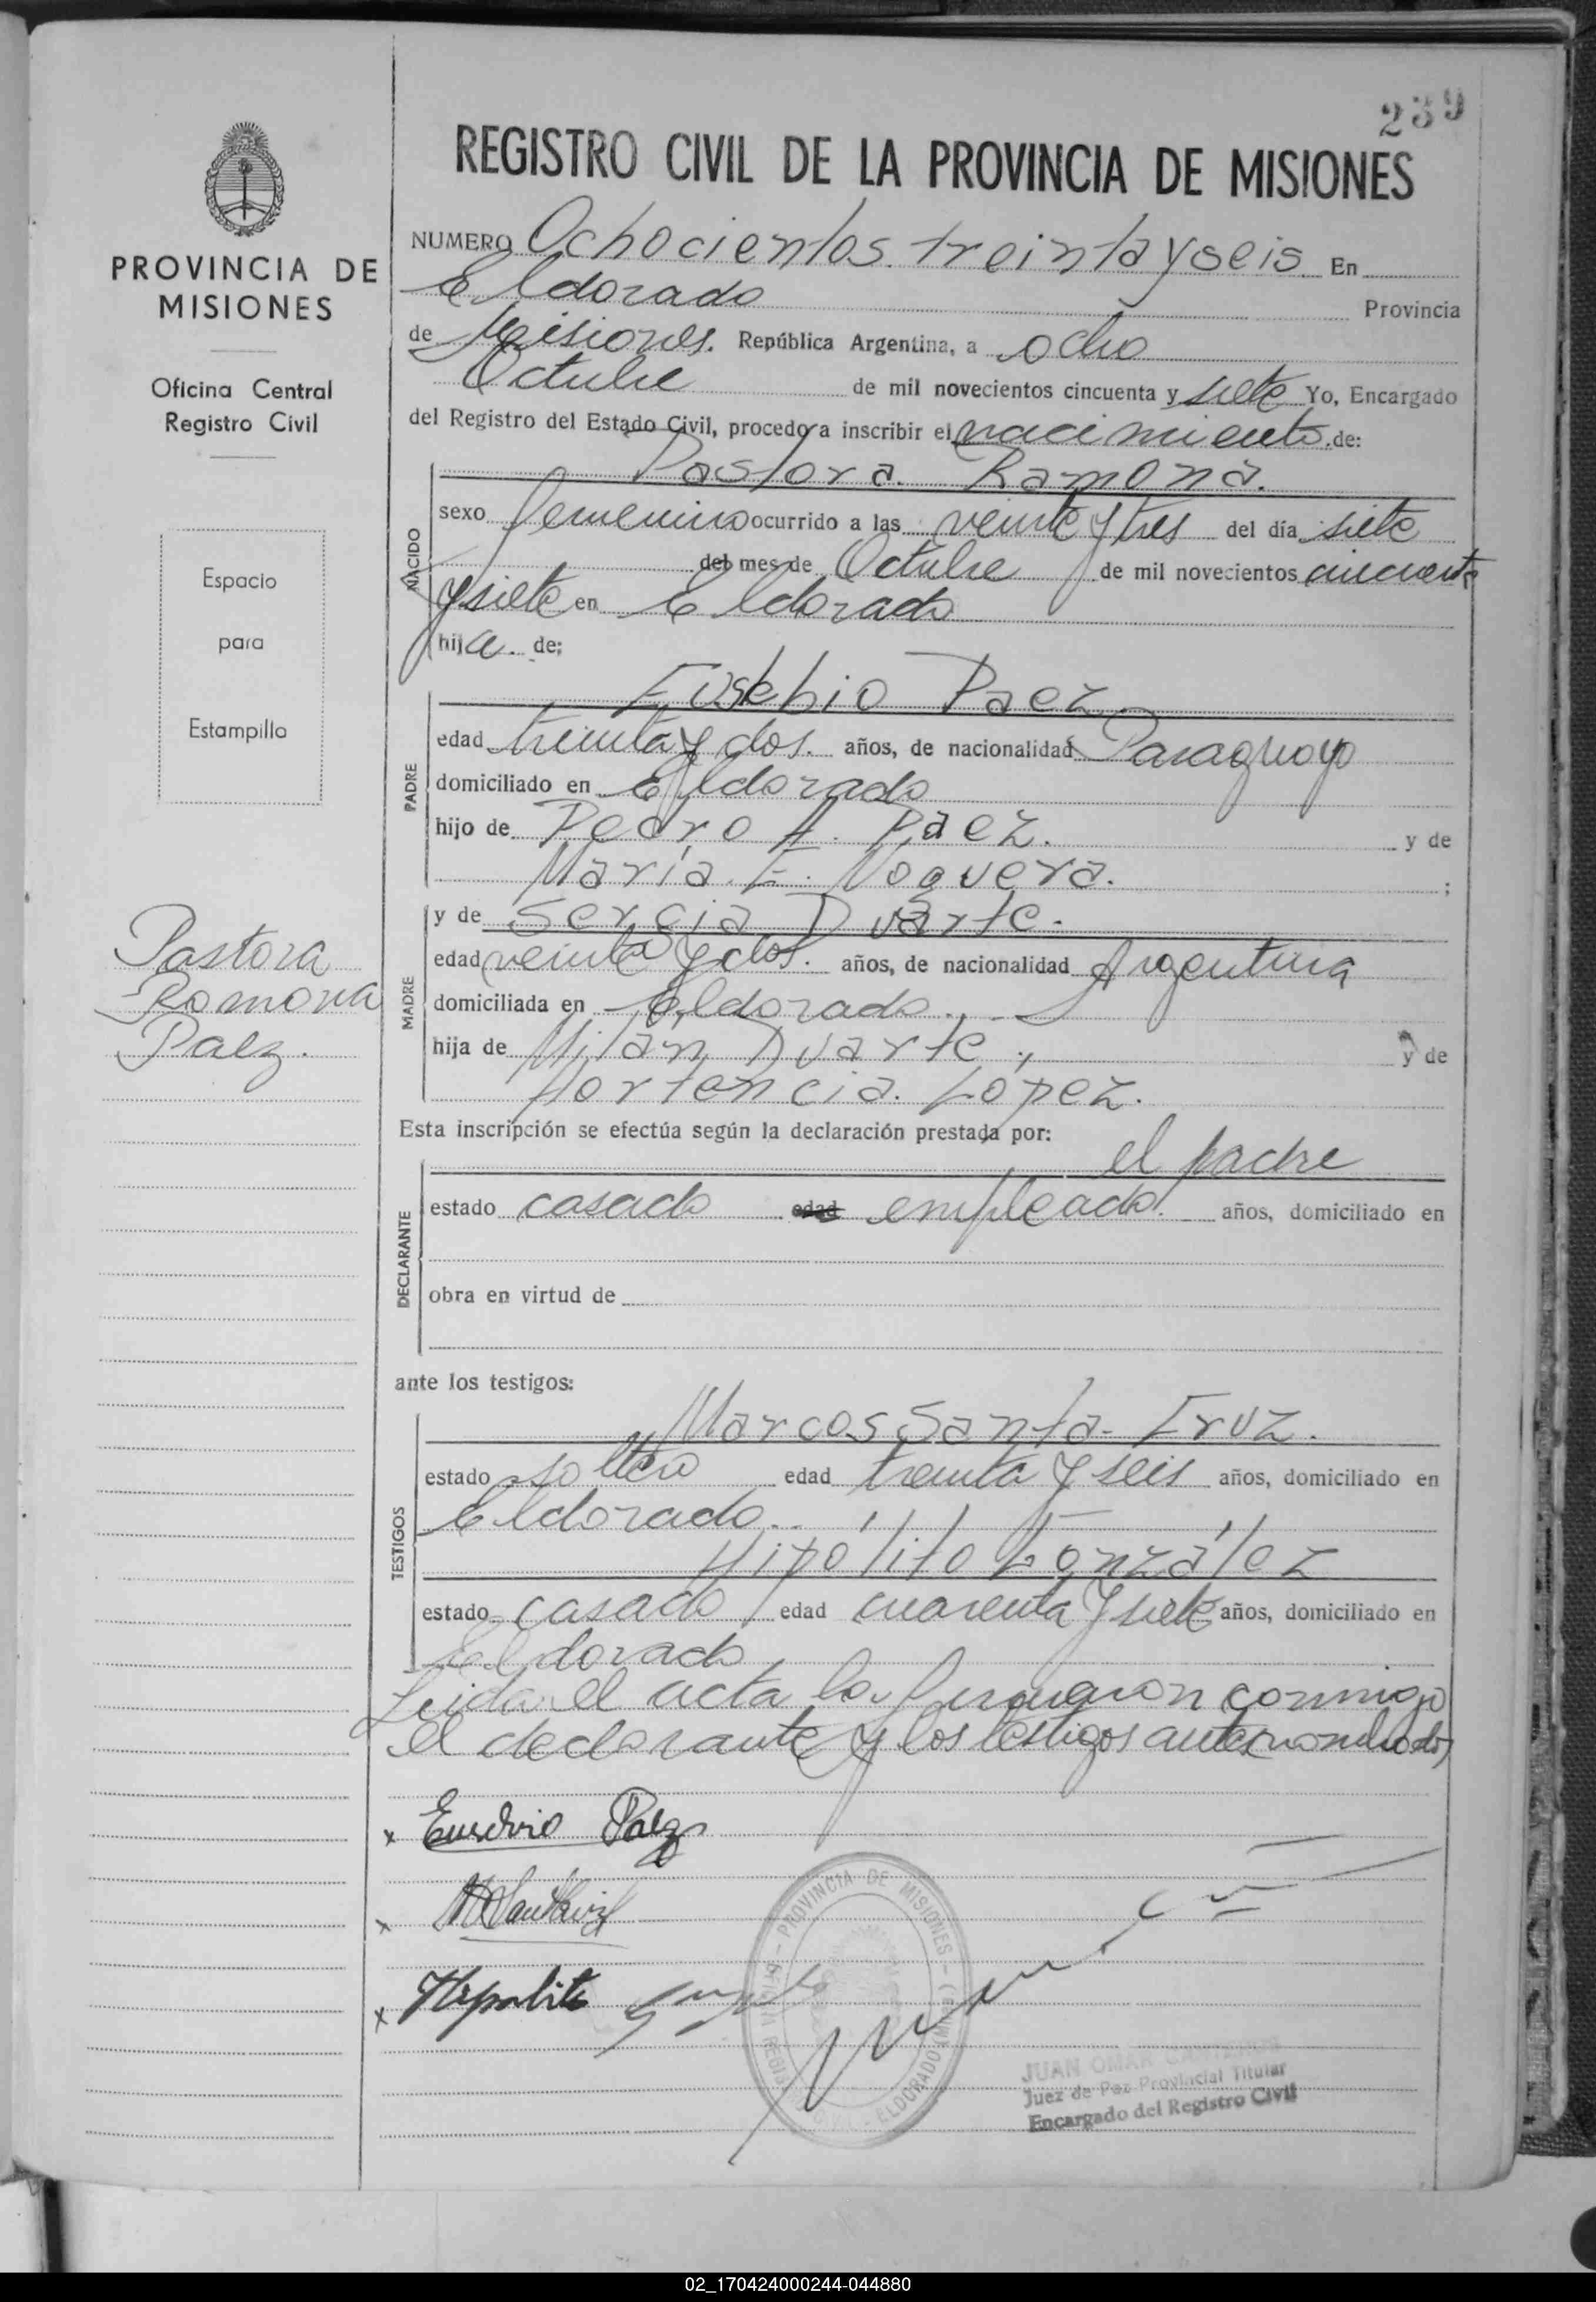 239
REGISTRO CIVIL DE LA PROVINCIA DE MISIONES
PROVINCIA DE
MISIONES
Oficina Central
Registro Civil
Espacio
para
Estampilla
Pastora
Ramona
Paez.
NUMERO Ochocientos treinta y seis En
Eldorado Provincia
de Misiones. República Argentina, a ocho
Octubre de mil novecientos cincuenta y siete Yo, Encargado
del Registro del Estado Civil, procedo a inscribir el nacimiento de:
Pastora. Ramona.
NACIDO
sexo femenino ocurrido a las veinte y tres del día siete
del mes de Octubre de mil novecientos cincuenta
y siete en Eldorado
hija. de;
Eusebio Paez
PADRE
edad treinta y dos. años, de nacionalidad Paraguayo
domiciliado en Eldorado
hijo de Pedro A. Paez. y de
María. E. Noguera. ;
y de Sergia Duarte.
MADRE
edad veinte y dos. años, de nacionalidad Argentina
domiciliada en Eldorado.
hija de Milan Duarte ; y de
Hortencia. Lopez.
Esta inscripción se efectúa según la declaración prestada por:
el padre
DECLARANTE
estado casado edad empleado. años, domiciliado en
obra en virtud de
ante los testigos:
Marcos Santa Cruz.
TESTIGOS
estado soltero edad treinta y seis años, domiciliado en
Eldorado.
Hipólito González
estado casado edad cuarenta y siete años, domiciliado en
Eldorado
Leida el acta la firmaron conmigo
el declarante y los testigos antes nombrados
x Eusevio Paez
x
x Hipolito
PROVINCIA DE MISIONES - ELDORADO
JUAN OMAR
Juez de Paz Provincial Titular
Encargado del Registro Civil
02_170424000244-044880